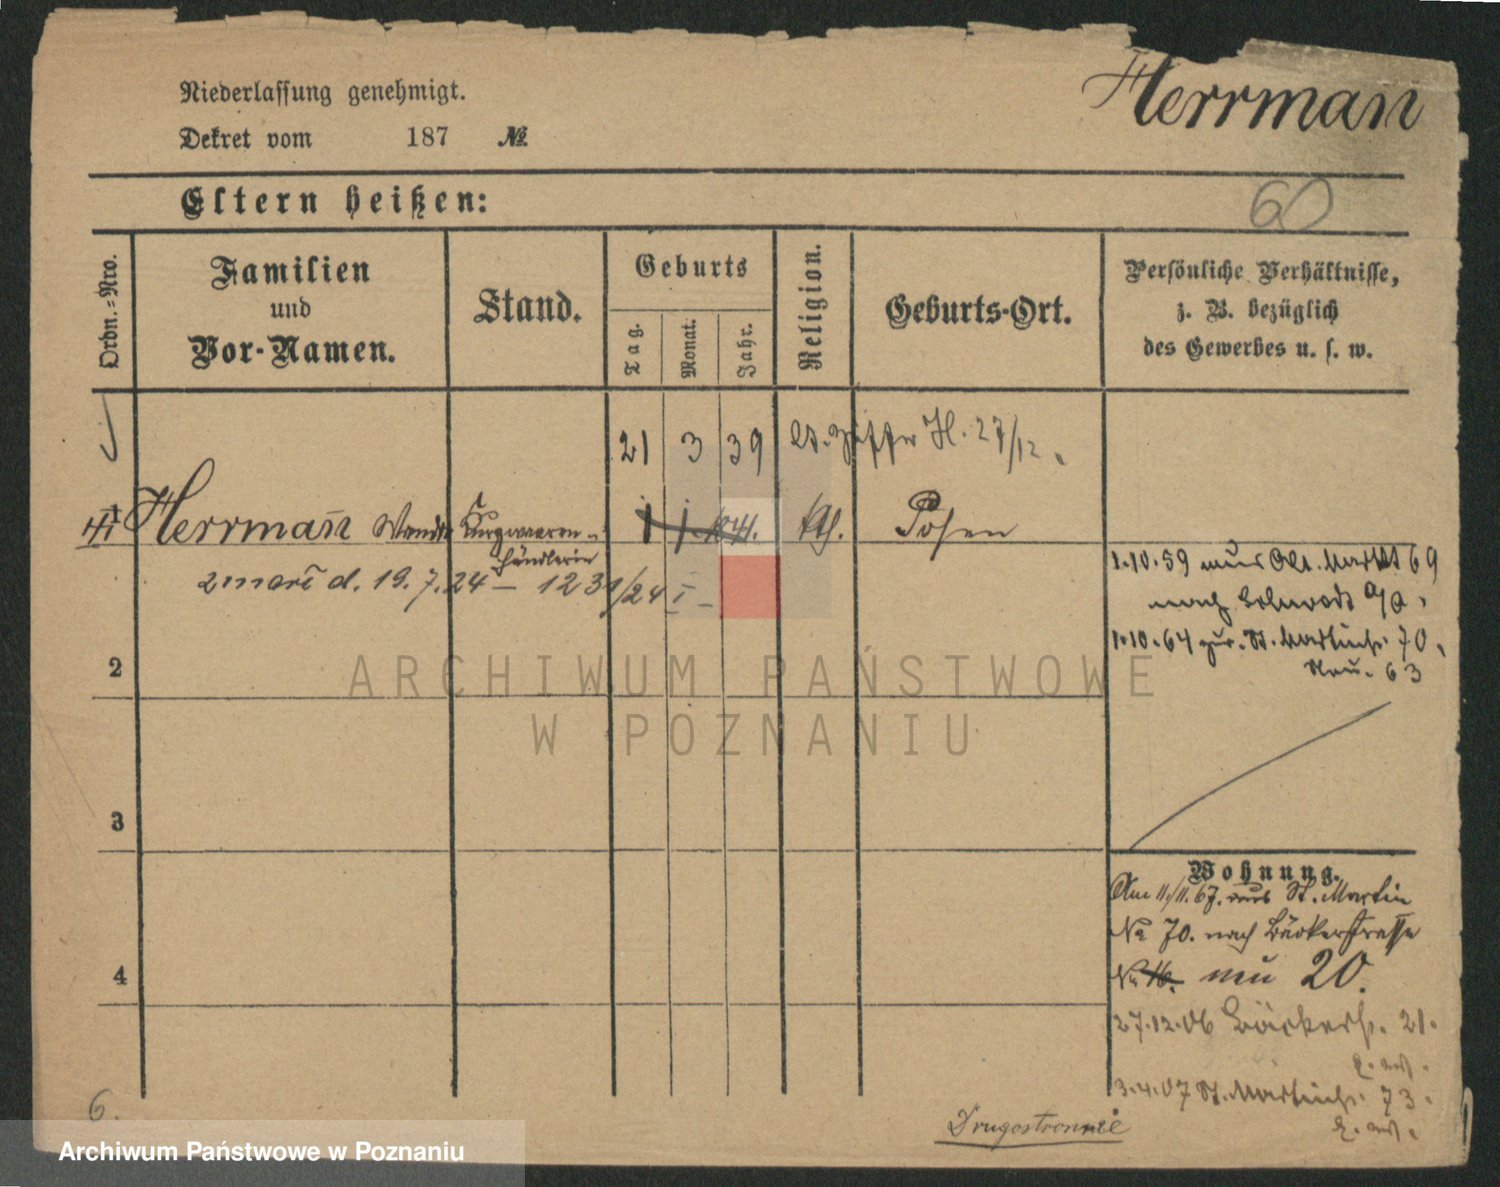 Niederlassung genehmigt.
Herrman̄
Dekret vom 187 №
Eltern heißen:
60
Ordn.-Nro.
Familien
und
Vor-Namen.
Stand.
Geburts
Tag.
Monat.
Jahr.
Religion.
Geburts-Ort.
Persönliche Verhältnisse,
z. B. bezüglich
des Gewerbes u. s. w.
21 3 39 27/12.
1 Herrman̄ Kurzwaaren-
händlerin
1 1 Posen
zmarł d. 19.7.24 – 1231/24 I –
1.10.59 aus Alt. Markt 69
nach
1.10.64 zur. St. Martinstr. 70.
Neu. 63
2
ARCHIWUM PAŃSTWOWE
W POZNANIU
3
Wohnung.
Am 11/11.67. aus St. Martin
No 70. nach Bäckerstrasse
No 16. neu 20.
4
27.12.06 Bäckerstr. 21.
3.4.07 St. Martinstr. 73.
6.
Drugostronnie
Archiwum Państwowe w Poznaniu